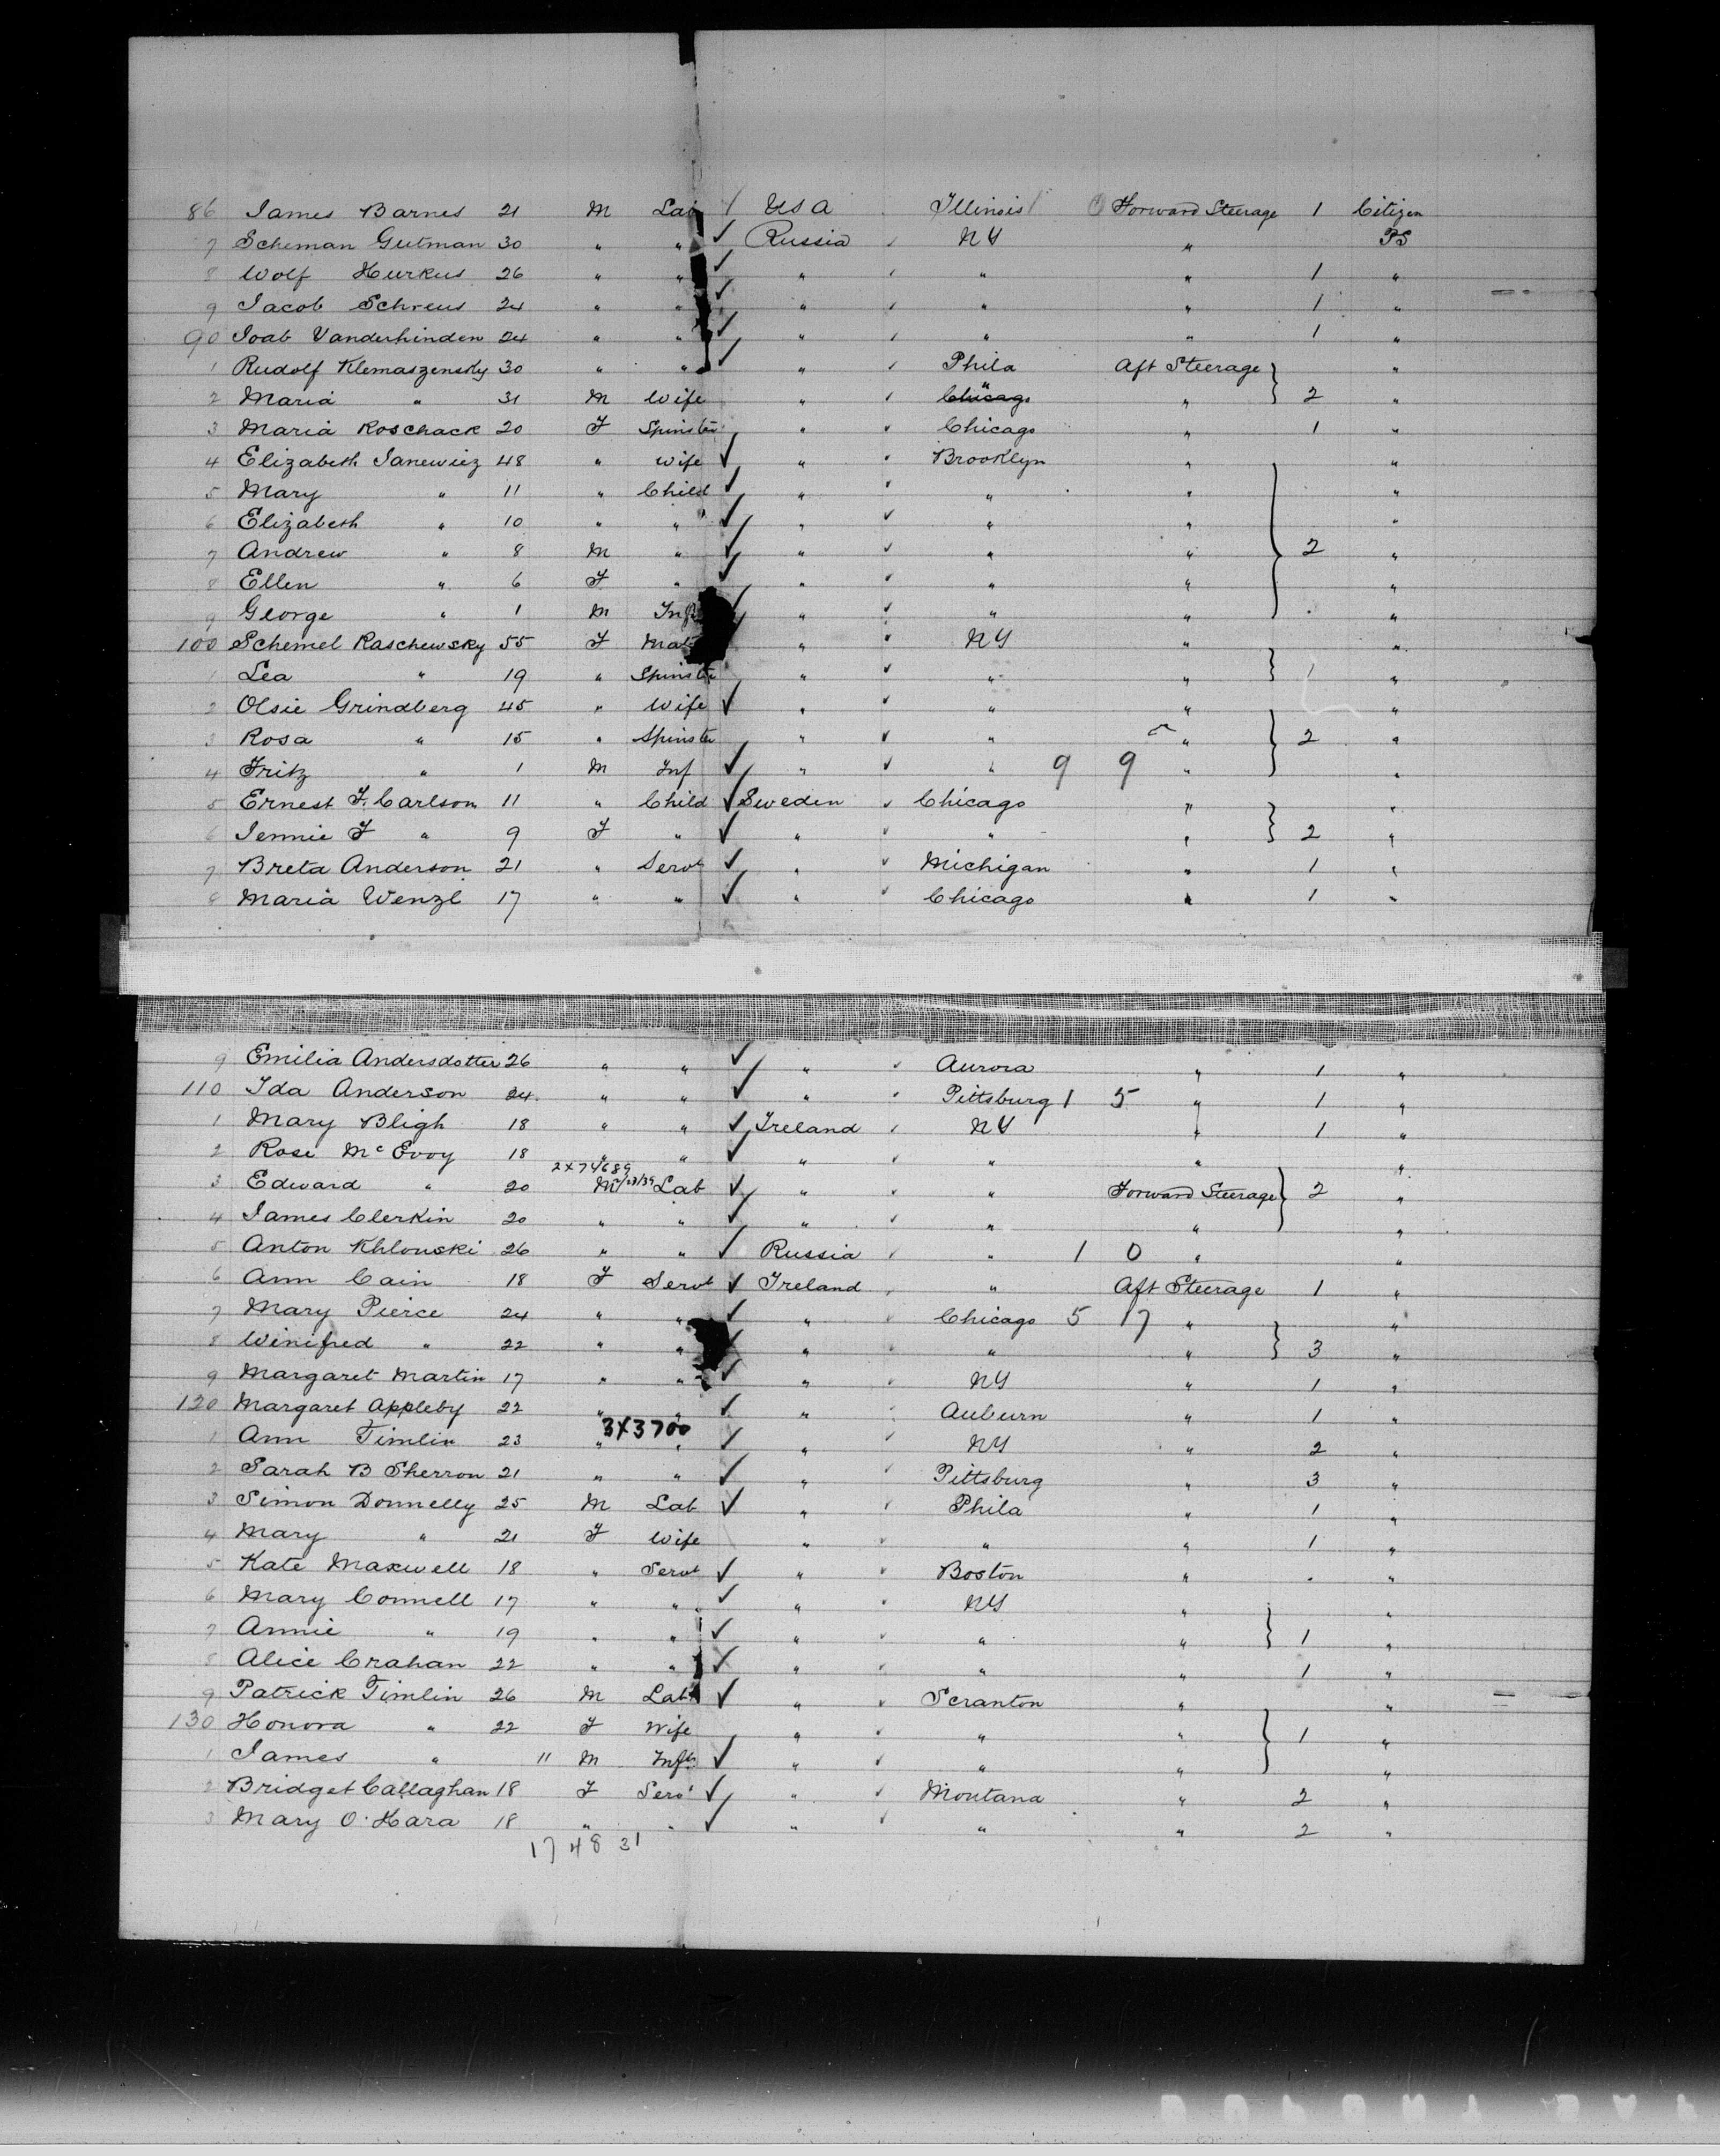 86 James Barnes 21 M Lab / USA Illinois Forward Steerage 1 Citizen
7 Scheman Gutman 30 " " ✓ Russia ✓ NY " PS
8 Wolf Hurkus 26 " " ✓ " ✓ " " 1 "
9 Jacob Schreus 24 " " ✓ " ✓ " " 1 "
90 Joab Vanderhinden 24 " " ✓ " ✓ " " 1 "
1 Rudolf Klemaszensky 30 " " ✓ " ✓ Phila Aft Steerage "
2 Maria " 31 M Wife " ✓ Chicago " " 2 "
3 Maria Roschack 20 F Spinster " ✓ Chicago " 1 "
4 Elizabeth Janewiez 48 " Wife ✓ " ✓ Brooklyn " "
5 Mary " 11 " Child ✓ " ✓ " " "
6 Elizabeth " 10 " " ✓ " ✓ " " "
7 Andrew " 8 M " ✓ " ✓ " " 2 "
8 Ellen " 6 F " ✓ " ✓ " " "
9 George " 1 M Inf ✓ " ✓ " " "
100 Schemel Raschewsky 55 F Mat " ✓ NY " "
1 Lea " 19 " Spinster " ✓ " " 1 "
2 Olsie Grindberg 45 " Wife ✓ " ✓ " " "
3 Rosa " 15 " Spinster " ✓ " " 2 "
4 Fritz " 1 M Inf ✓ " ✓ " 9 9 " "
5 Ernest F. Carlson 11 " Child ✓ Sweden ✓ Chicago " "
6 Jennie F " 9 F " ✓ " ✓ " " 2 "
7 Breta Anderson 21 " Servt ✓ " ✓ Michigan " 1 "
8 Maria Wenzl 17 " " ✓ " ✓ Chicago " 1 "
9 Emilia Andersdotter 26 " " ✓ " ✓ Aurora " 1 "
110 Ida Anderson 24 " " ✓ " ✓ Pittsburg 1 5 " 1 "
1 Mary Bligh 18 " " ✓ Ireland ✓ NY " 1 "
2 Rose McEvoy 18 " " ✓ " ✓ " " "
2X74689
3 Edward " 20 M Lab ✓ " ✓ " Forward Steerage 2 "
4 James Clerkin 20 " " ✓ " ✓ " " "
5 Anton Khlouski 26 " " ✓ Russia ✓ " 1 0 " "
6 Ann Cain 18 F Servt ✓ Ireland ✓ " Aft Steerage 1 "
7 Mary Pierce 24 " " ✓ " ✓ Chicago 5 17 " "
8 Winifred " 22 " " ✓ " ✓ " " 3 "
9 Margaret Martin 17 " " ✓ " ✓ NY " 1 "
120 Margaret Appleby 22 " " ✓ " ✓ Auburn " 1 "
3X3700
1 Ann Timlin 23 " " ✓ " ✓ NY " 2 "
2 Sarah B Sherron 21 " " ✓ " ✓ Pittsburg " 3 "
3 Simon Donnelly 25 M Lab ✓ " ✓ Phila " 1 "
4 Mary " 21 F Wife " ✓ " " 1 "
5 Kate Maxwell 18 " Servt ✓ " ✓ Boston " "
6 Mary Connell 17 " " ✓ " ✓ NY " "
7 Annie " 19 " " ✓ " ✓ " " 1 "
8 Alice Crahan 22 " " ✓ " ✓ " " 1 "
9 Patrick Timlin 26 M Lab ✓ " ✓ Scranton " "
130 Honora " 22 F Wife " ✓ " " 1 "
1 James " 11 M Inft ✓ " ✓ " " "
2 Bridget Callaghan 18 F Serv ✓ " ✓ Montana " 2 "
3 Mary O'Hara 18 " " ✓ " ✓ " " 2 "
17 48 31